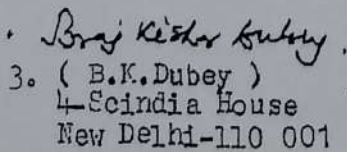 . Braj Kishor Dubey.
3. ( B.K.Dubey )
4-Scindia House
New Delhi-110 001